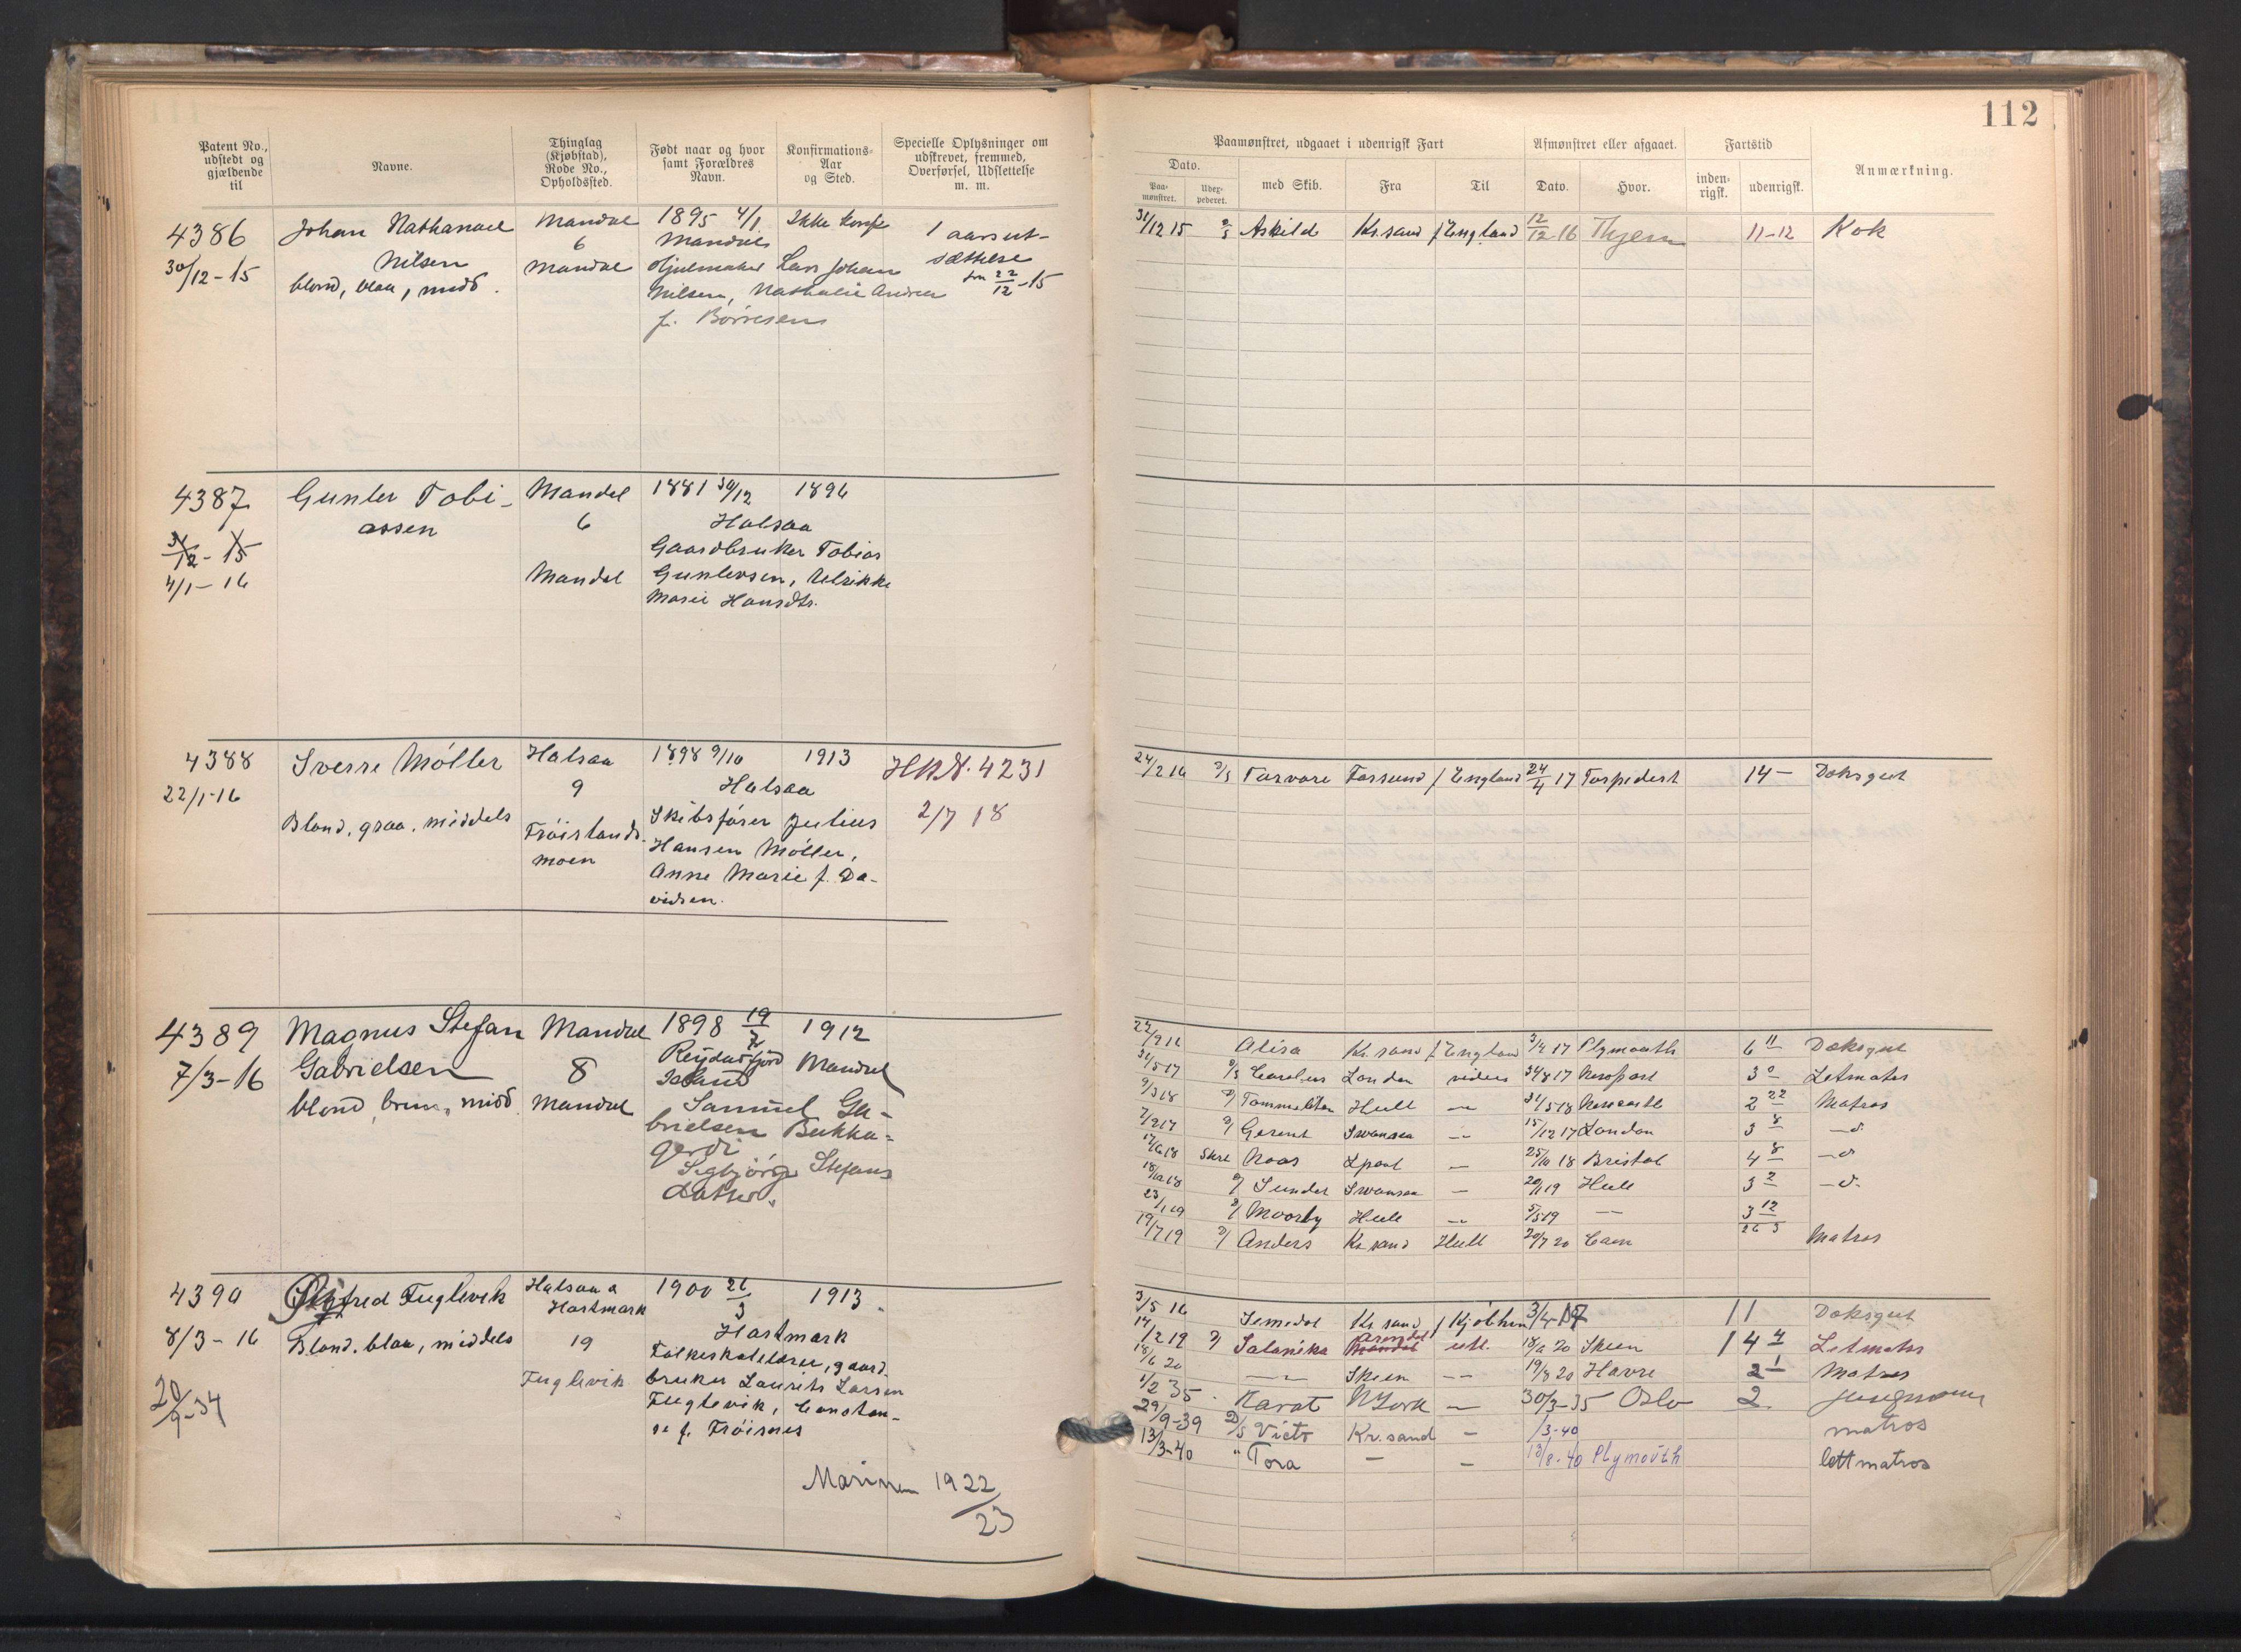 112
Patent No., udstedt og gjældende til
Navne.
Thinglag (Kjøbstad), Rode No., Opholdssted.
Født naar og hvor samt Forældres Navn.
Konfirmations-Aar og Sted.
Specielle Oplysninger om udskrevet, fremmed, Overførsel, Udslettelse m. m.
Paamønstret, udgaaet i udenrigsk Fart
Afmønstret eller afgaaet.
Fartstid
Anmærkning.
Dato.
Paa-mønstret.
Uderpederet.
med Skib.
Fra
Til
Dato.
Hvor.
inden-rigsk.
udenrigsk.
4386
30/12-15
Johan Nathanael
Nilsen
blond, blaa, midd.
Mandal
6
Mandal
1895 4/1 Ikke konf
Mandal
Hjulmaker Lars Johan
Nilsen, Nathalie Andrea
f. Børresen
1 aars ut-
sættelse
fra 22/12-15
31/12 15 D/S Askild Kr.sand f England 12/12-16 11-12 Kok
4387
31/12-15
4/1-16
Gunler Tobi-
assen
Mandal
6
Mandal
1881 30/12 1896
Halsaa
Gaardbruker Tobias
Gunlersen, Ulrikke
Marie Hansdtr.
4388
22/1-16
Sverre Møller
Blond, graa, middels
Halsaa
9
Frøislands-
moen
1898 9/10 1913
Halsaa
Skibsfører Julius
Hansen Møller,
Anne Marie f. Da-
vidsen.
4231
2/7 18
24/2 16 D/S Farsund f England 24/4 17 Torpedert 14- Dæksgut
4389
7/3-16
Magnus Stefan
Gabrielsen
blond, brun, midd
Mandal
8
Mandal
1898 19/7 1912
Reydarfjord Mandal
Island
Samuel Ga-
brielsen Bakka-
gerdi
Stefans
datter.
22/9 16 Alisa Kr. sand f England 17 Plymouth 6 11 Dæksgut
D/S London videre 17 Newport 3 0 Letmatros
9/3 18 D/ Hull — 31/5 18 Newcastle 2 22 Matros
D/ Gerent Swansea — 15/12 17 London 3 8 —d.
Skr Noas Lpool — 25/10 18 Bristol 4 8 —d
D/ Sunder Swansea — 20/1 19 Hull 3 2 —d.
23/1 19 D/ Moorby Hull — 5/5 19 — 3 12
26 3
19/7 19 D/ Anders Kr sand Hull 20/7 20 Caen Matros
4390
8/3-16
20/9-34
Sigfred Fuglevik
Blond, blaa, middels
Halsaa &
Hartmark
19
Fuglevik
1900 26/3 1913
Hartmark
Folkeskolelærer, gaard-
bruker Laurits Larsen
Fuglevik, Constan-
se f. Frøisnes
Marinen 1922/23
3/5 16 Semedal Kr sand f Kjøbhvn 3/4-17 11 Dæksgut
14/2 19 D/ Salanika Arendal Mandal utl. 18/6 20 Skien 14 4 Letmatros
18/6 20 — Skien — 19/8 20 Havre 2 1 Matros
1/2 35 Karat N York — 30/3-35 Oslo 2 jungmann
29/9-39 D/S Victo Kr.sand — /3-40 matros
13/3-40 " Tora — — 13/8-40 Plymouth lettmatros